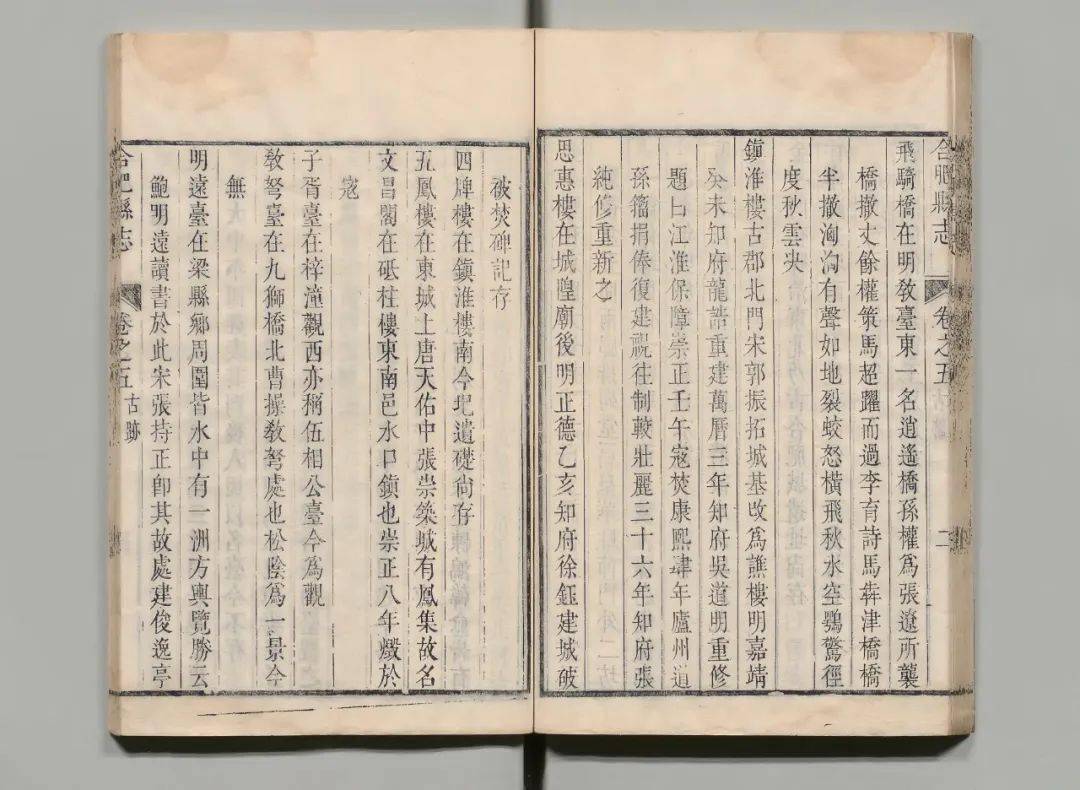 合肥縣志
卷之五
二
飛騎橋在明敎臺東一名逍遙橋孫權爲張遼所襲
橋撤丈餘權策馬超躍而過李育詩馬犇津橋橋
半撤洶洶有聲如地裂蛟怒橫飛秋水空鶚驚徑
度秋雲夬
鎭淮樓古郡北門宋郭振拓城基改爲譙樓明嘉靖
癸未知府龍誥重建萬曆三年知府吳道明重修
題曰江淮保障崇正壬午寇焚康熙肆年廬州道
孫籀捐俸復建視往制較壯麗三十六年知府張
純修重新之
思惠樓在城隍廟後明正德乙亥知府徐鈺建城破
破焚碑記存
四牌樓在鎭淮樓南今圮遺礎尙存
五鳳樓在東城上唐天佑中張崇築城有鳳集故名
文昌閣在砥柱樓東南邑水口鎭也崇正八年燬於
寇
子胥臺在梓潼觀西亦稱伍相公臺今爲觀
敎弩臺在九獅橋北曹操敎弩處也松陰爲一景今
無
明遠臺在梁縣鄉周圍皆水中有一洲方輿覽勝云
鮑明遠讀書於此宋張持正卽其故處建俊逸亭
合肥縣志
卷之五
古跡